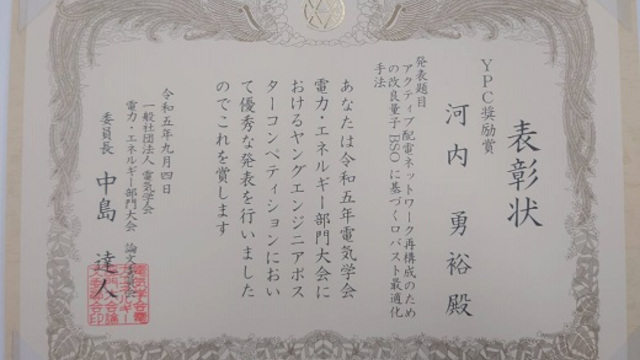 表彰状
YPC奨励賞
河内 勇裕 殿
発表題目
アクティブ配電ネットワーク再構成のため
の改良量子BSOに基づくロバスト最適化
手法
あなたは令和五年電気学会
電力・エネルギー部門大会に
おけるヤングエンジニアポス
ターコンペティションにおい
て優秀な発表を行いました
のでこれを賞します
令和五年九月四日
一般社団法人 電気学会
電力・エネルギー部門大会 論文委員会
委員長 中島 達人